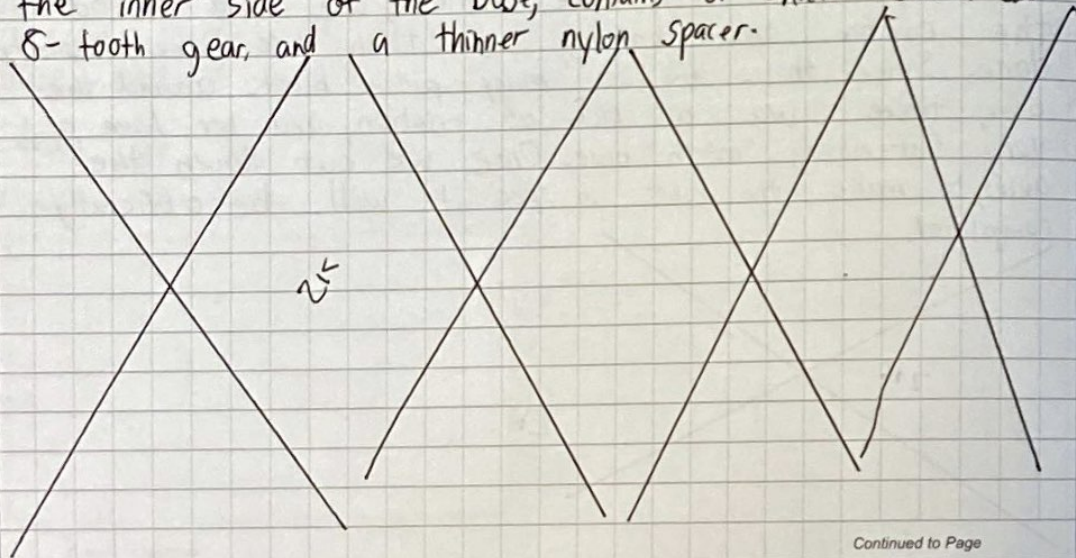 the inner side of the
8- tooth gear, and a thinner nylon spacer.
Continued to Page